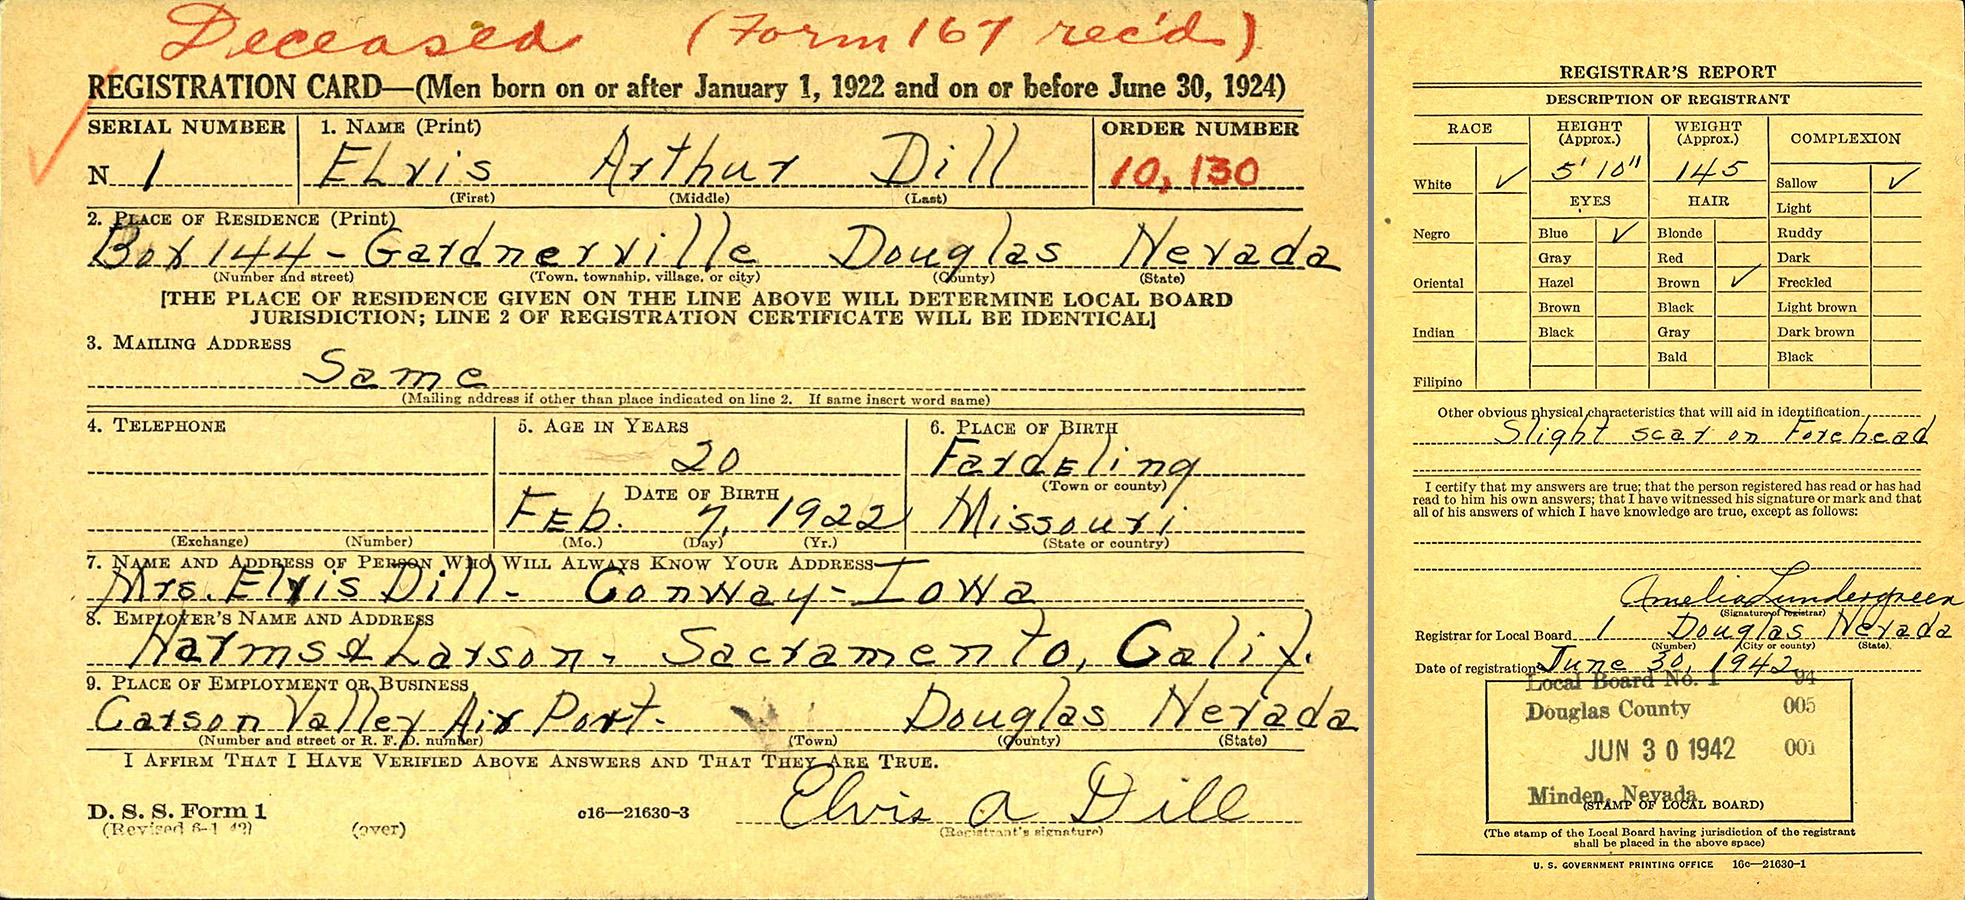 Deceased (Form 167 rec'd)
REGISTRATION CARD—(Men born on or after January 1, 1922 and on or before June 30, 1924)
SERIAL NUMBER 1. NAME (Print) ORDER NUMBER
N 1 Elvis Arthur Dill 10,130
(First) (Middle) (Last)
2. PLACE OF RESIDENCE (Print)
Box 144 - Gardnerville Douglas Nevada
(Number and street) (Town, township, village, or city) (County) (State)
[THE PLACE OF RESIDENCE GIVEN ON THE LINE ABOVE WILL DETERMINE LOCAL BOARD
JURISDICTION; LINE 2 OF REGISTRATION CERTIFICATE WILL BE IDENTICAL]
3. MAILING ADDRESS
Same
(Mailing address if other than place indicated on line 2. If same insert word same)
4. TELEPHONE 5. AGE IN YEARS 6. PLACE OF BIRTH
20 Fardeling
DATE OF BIRTH (Town or county)
Feb. 7, 1922 Missouri
(Exchange) (Number) (Mo.) (Day) (Yr.) (State or country)
7. NAME AND ADDRESS OF PERSON WHO WILL ALWAYS KNOW YOUR ADDRESS
Mrs. Elvis Dill - Conway - Iowa
8. EMPLOYER'S NAME AND ADDRESS
Harms & Larson - Sacramento, Calif.
9. PLACE OF EMPLOYMENT OR BUSINESS
Carson Valley Air Port - Douglas Nevada
(Number and street or R. F. D. number) (Town) (County) (State)
I AFFIRM THAT I HAVE VERIFIED ABOVE ANSWERS AND THAT THEY ARE TRUE.
D. S. S. Form 1 c16—21630-3 Elvis A Dill
(Revised 6-1-42) (over) (Registrant's signature)
REGISTRAR'S REPORT
DESCRIPTION OF REGISTRANT
RACE HEIGHT (Approx.) WEIGHT (Approx.) COMPLEXION
White ✓ 5' 10" 145 Sallow ✓
EYES HAIR Light
Negro Blue ✓ Blonde Ruddy
Gray Red Dark
Oriental Hazel Brown ✓ Freckled
Brown Black Light brown
Indian Black Gray Dark brown
Bald Black
Filipino
Other obvious physical characteristics that will aid in identification
Slight scar on Forehead
I certify that my answers are true; that the person registered has read or has had
read to him his own answers; that I have witnessed his signature or mark and that
all of his answers of which I have knowledge are true, except as follows:
Amelia Lundergreen
(Signature of registrar)
Registrar for Local Board 1 Douglas Nevada
(Number) (City or county) (State)
Date of registration June 30, 1942
Local Board No. 1 94
Douglas County 005
JUN 30 1942 001
Minden, Nevada
(STAMP OF LOCAL BOARD)
(The stamp of the Local Board having jurisdiction of the registrant
shall be placed in the above space)
U. S. GOVERNMENT PRINTING OFFICE 16c—21630-1